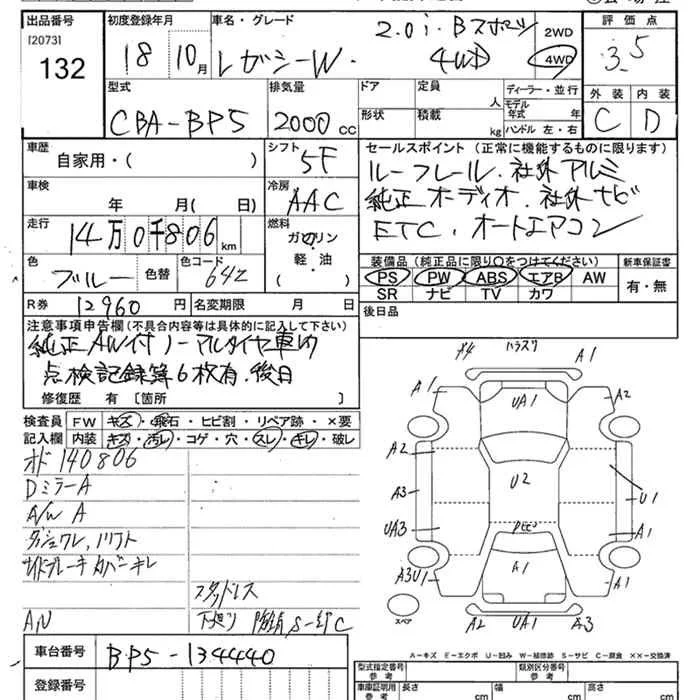 出品番号
[2073]
132
初度登録年月
18 10月
車名・グレード
2.0i・Bスポーツ
レガシーW. 4WD
2WD
4WD
評価点
3.5
外装 内装
C D
型式
CBA-BP5
排気量
2000 cc
ドア
形状
定員
人
積載
kg
ディーラー・並行
モデル
年式 年
ハンドル 左・右
車歴
自家用・( )
シフト
5F
車検
年 月( 日)
冷房
AAC
走行
14万0千806km
燃料
ガソリン
軽・油
( )
色
ブルー
色替
色コード
64Z
R券
12960円
名変期限 月 日
セールスポイント(正常に機能するものに限ります)
ルーフレール.社外アルミ
純正オーディオ.社外ナビ
ETC.オートエアコン
装備品(純正品に限り○をつけてください)
PS PW ABS エアB AW
SR ナビ TV カワ
新車保証書
有・無
後日品
注意事項申告欄(不具合内容等は具体的に記入して下さい)
純正AW付ノーマルタイヤ車内
点検記録簿6枚有.後日
修復歴 有 〔箇所 〕
検査員
記入欄
FW キズ・飛石・ヒビ割・リペア跡・×要
内装 キズ・汚レ・コゲ・穴・スレ・キレ・破レ
オド 140806
DミラーA
A/W A
サイドブレーキカバーキレ
スタッドレス
AN
車台番号
BP5-134440
登録番号
A1
A1
UA1
A2
A2
A3
U2
U1
UA3
A1
A3U1
A1
A1
A2
UA1
A3
スペア
A-キズ E-エクボ U-凹み W-補修跡 S-サビ C-腐食 ××-交換済
型式指定番号
参考
類別区分番号
参考
車庫証明用
参考
長さ cm
幅 cm
高さ cm